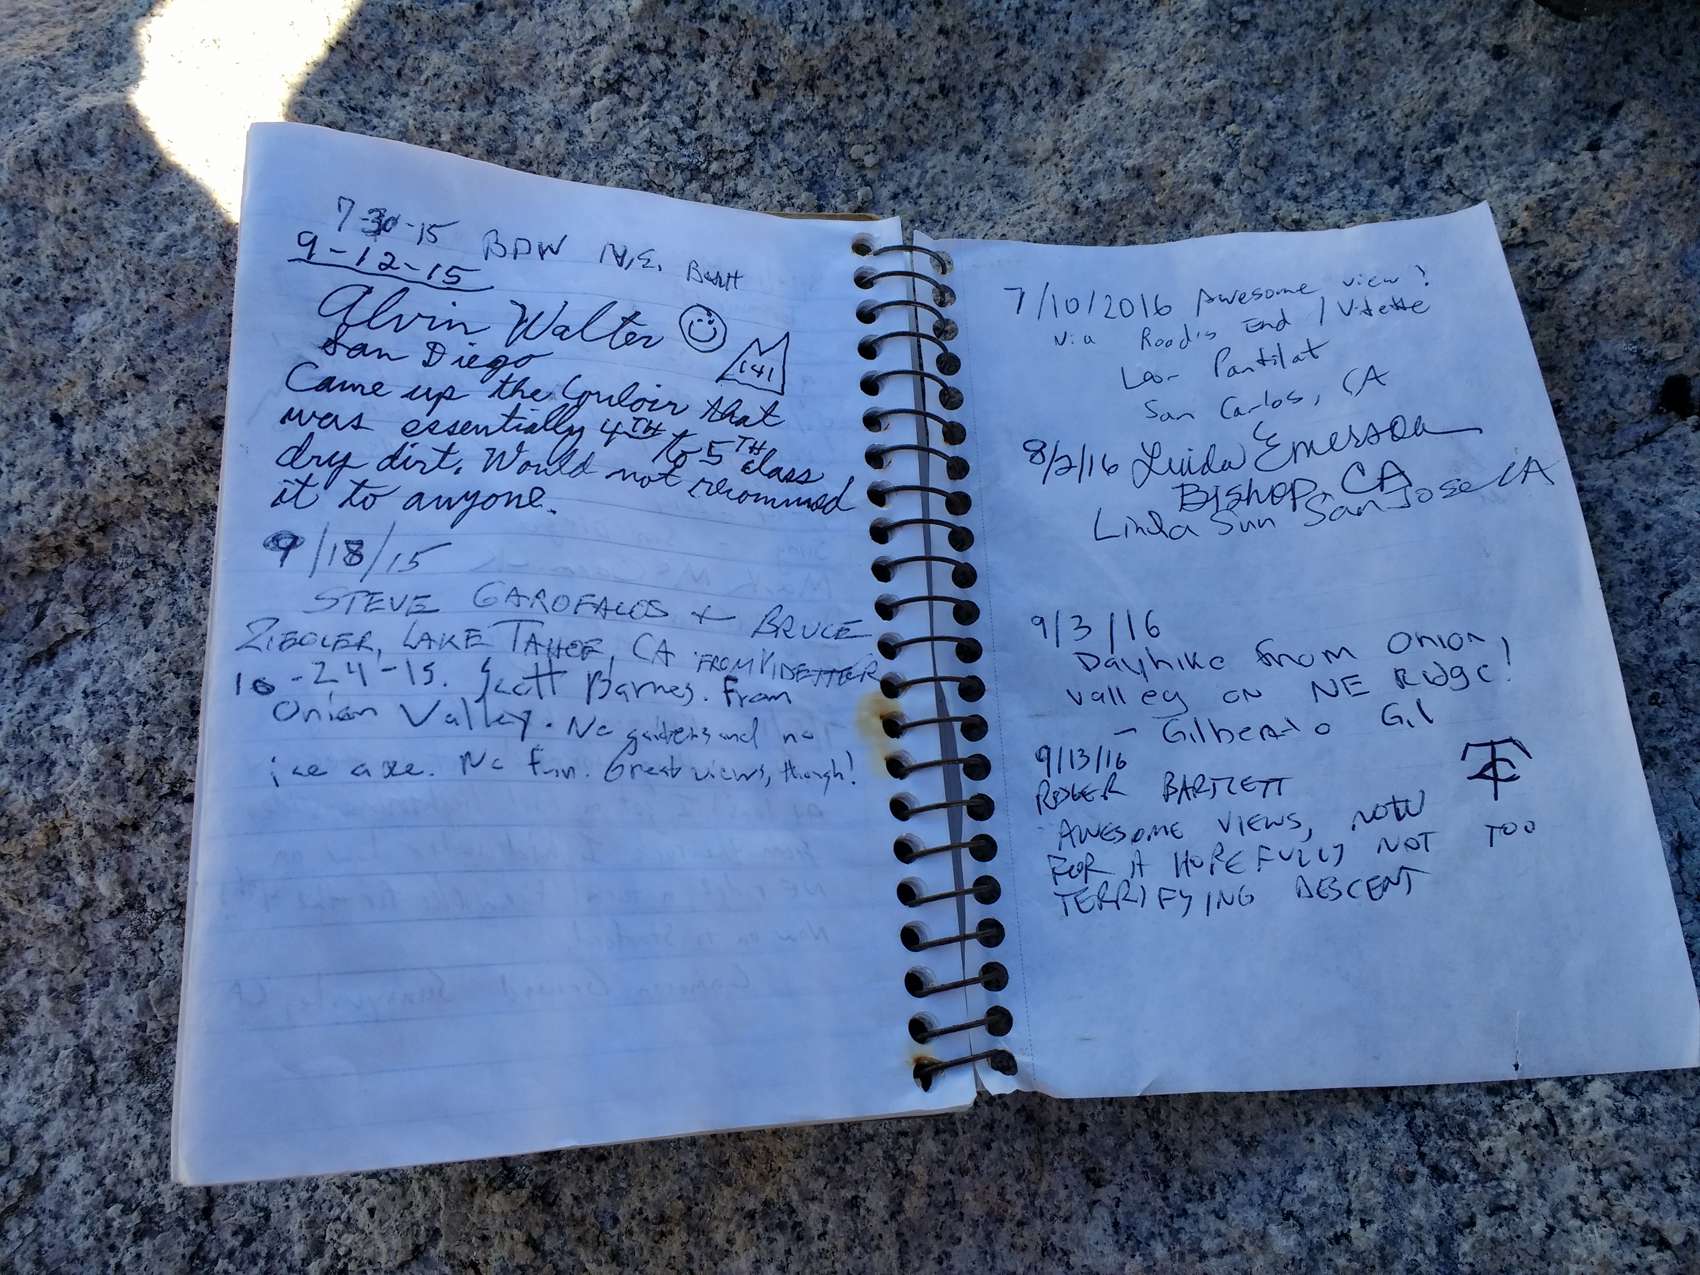 7-30-15 BDW N.E.
9-12-15
Alvin Walter
141
San Diego
Came up the Couloir that
was essentially 4TH to 5TH class
dry dirt. Would not recommed
it to anyone.
9/18/15
STEVE GAROFALOS + BRUCE
ZIEGLER, LAKE TAHOE, CA FROM
10-24-15. Scott Barnes. From
Onion Valley. No gaiters and no
ice axe. No fun. Great views, though!
7/10/2016 Awesome view!
via Road's End / Vidette
Pantilat
San Carlos, CA
8/2/16 Linda Emerson
Bishop, CA
Linda Sun San Jose CA
9/3/16
Dayhike from Onion
valley on NE Ridge!
- Gilberto Gil
9/13/16
ROGER BARTLETT
AWESOME VIEWS, NOW
FOR A HOPEFULLY NOT TOO
TERRIFYING DESCENT